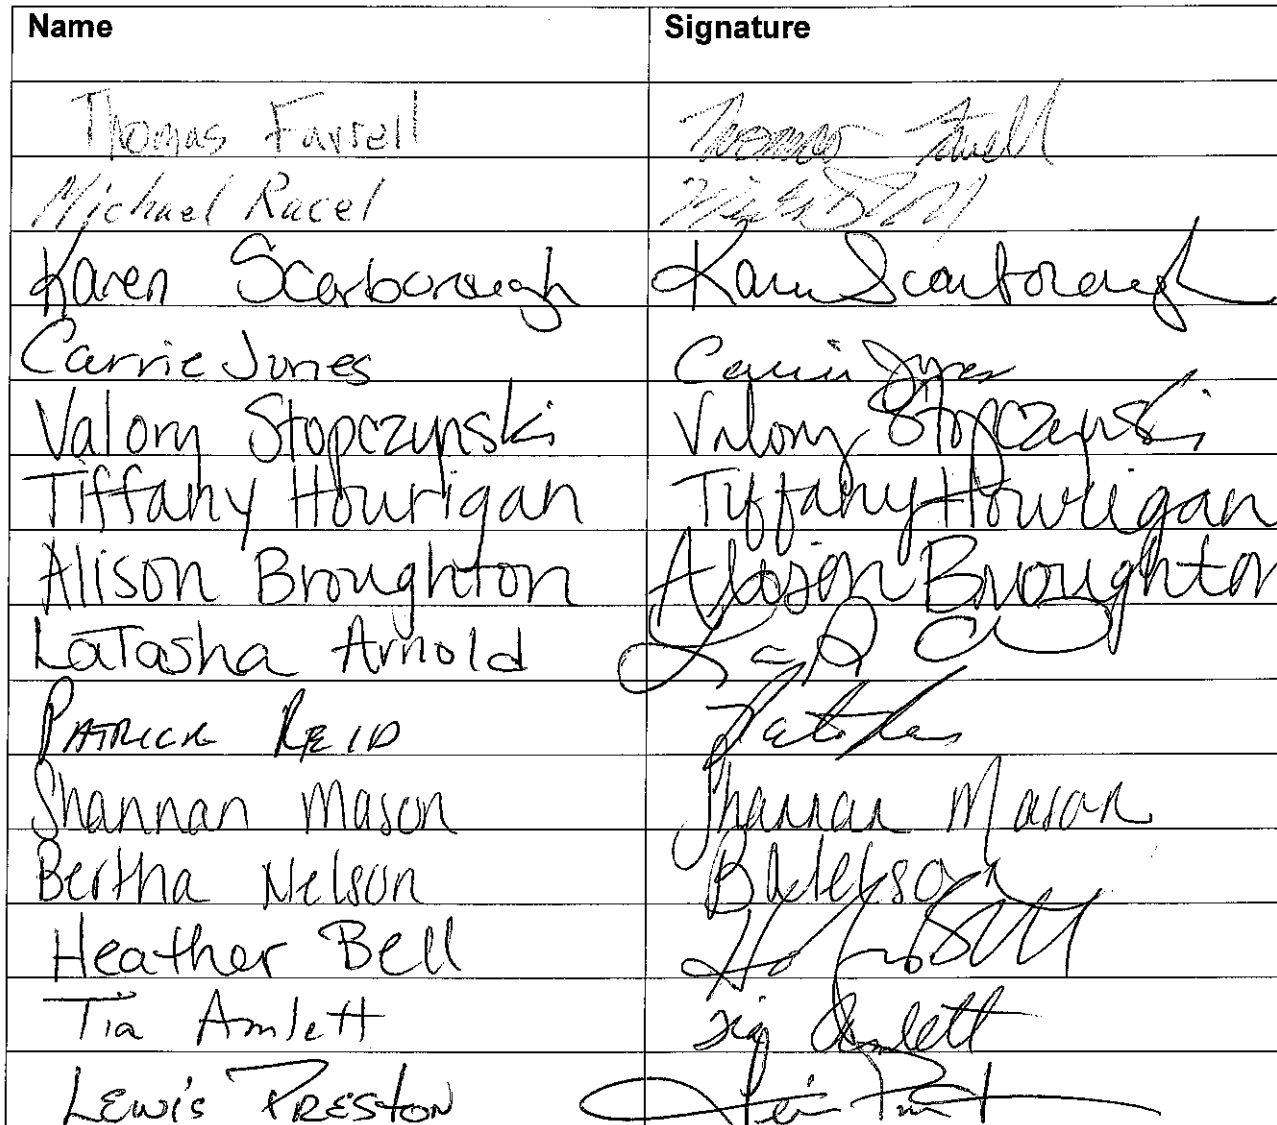 Name Signature
Thomas Farrell Thomas Farrell
Michael Racel
Karen Scarborough Karen Scarborough
Carrie Jones Carrie Jones
Valory Stopczynski Valory Stopczynski
Tiffany Hourigan Tiffany Hourigan
Alison Broughton Alison Broughton
LaTasha Arnold
PATRICK REID
Shannan Mason Shannan Mason
Bertha Nelson B Nelson
Heather Bell
Tia Amlett Tia Amlett
LEWIS PRESTON